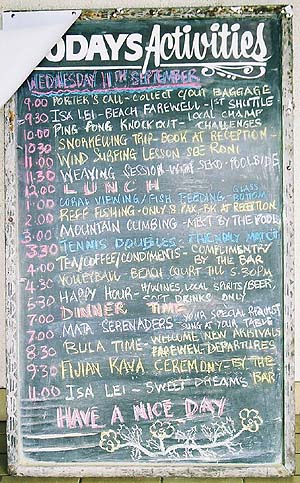 ODAYS Activities
WEDNESDAY 11TH SEPTEMBER
9.00 PORTER'S CALL - COLLECT C/OUT BAGGAGE
9.30 ISA LEI - BEACH FAREWELL - 1ST SHUTTLE
10.00 PING PONG KNOCKOUT - LOCAL CHAMP CHALLENGES
10.30 SNORKELLING TRIP - BOOK AT RECEPTION -
11.00 WIND SURFING LESSON SEE RONI
11.30 WEAVING SESSION WITH SEKO - POOLSIDE
12.00 LUNCH
1.00 CORAL VIEWING/FISH FEEDING - GLASS BOTTOM
2.00 REEF FISHING - ONLY 8 PAX - BK AT RECEPTION
3.00 MOUNTAIN CLIMBING - MEET BY THE POOL
3.30 TENNIS DOUBLES - FRIENDLY MATCH
4.00 TEA/COFFEE/CONDIMENTS - COMPLIMENTRY BY THE BAR
4.30 VOLLEYBALL - BEACH COURT TILL 5.30PM
5.30 HAPPY HOUR - H/WINES, LOCAL SPIRITS/BEER, SOFT DRINKS ONLY
DINNER TIME
7.00 MATA SERENADERS - YOUR SPECIAL REQUEST SUNG AT YOUR TABLE
8.30 BULA TIME - WELCOME NEW ARRIVALS FAREWELL DEPARTURES
9.30 FIJIAN KAVA CEREMONY - BY THE BAR
11.00 ISA LEI - SWEET DREAMS
HAVE A NICE DAY